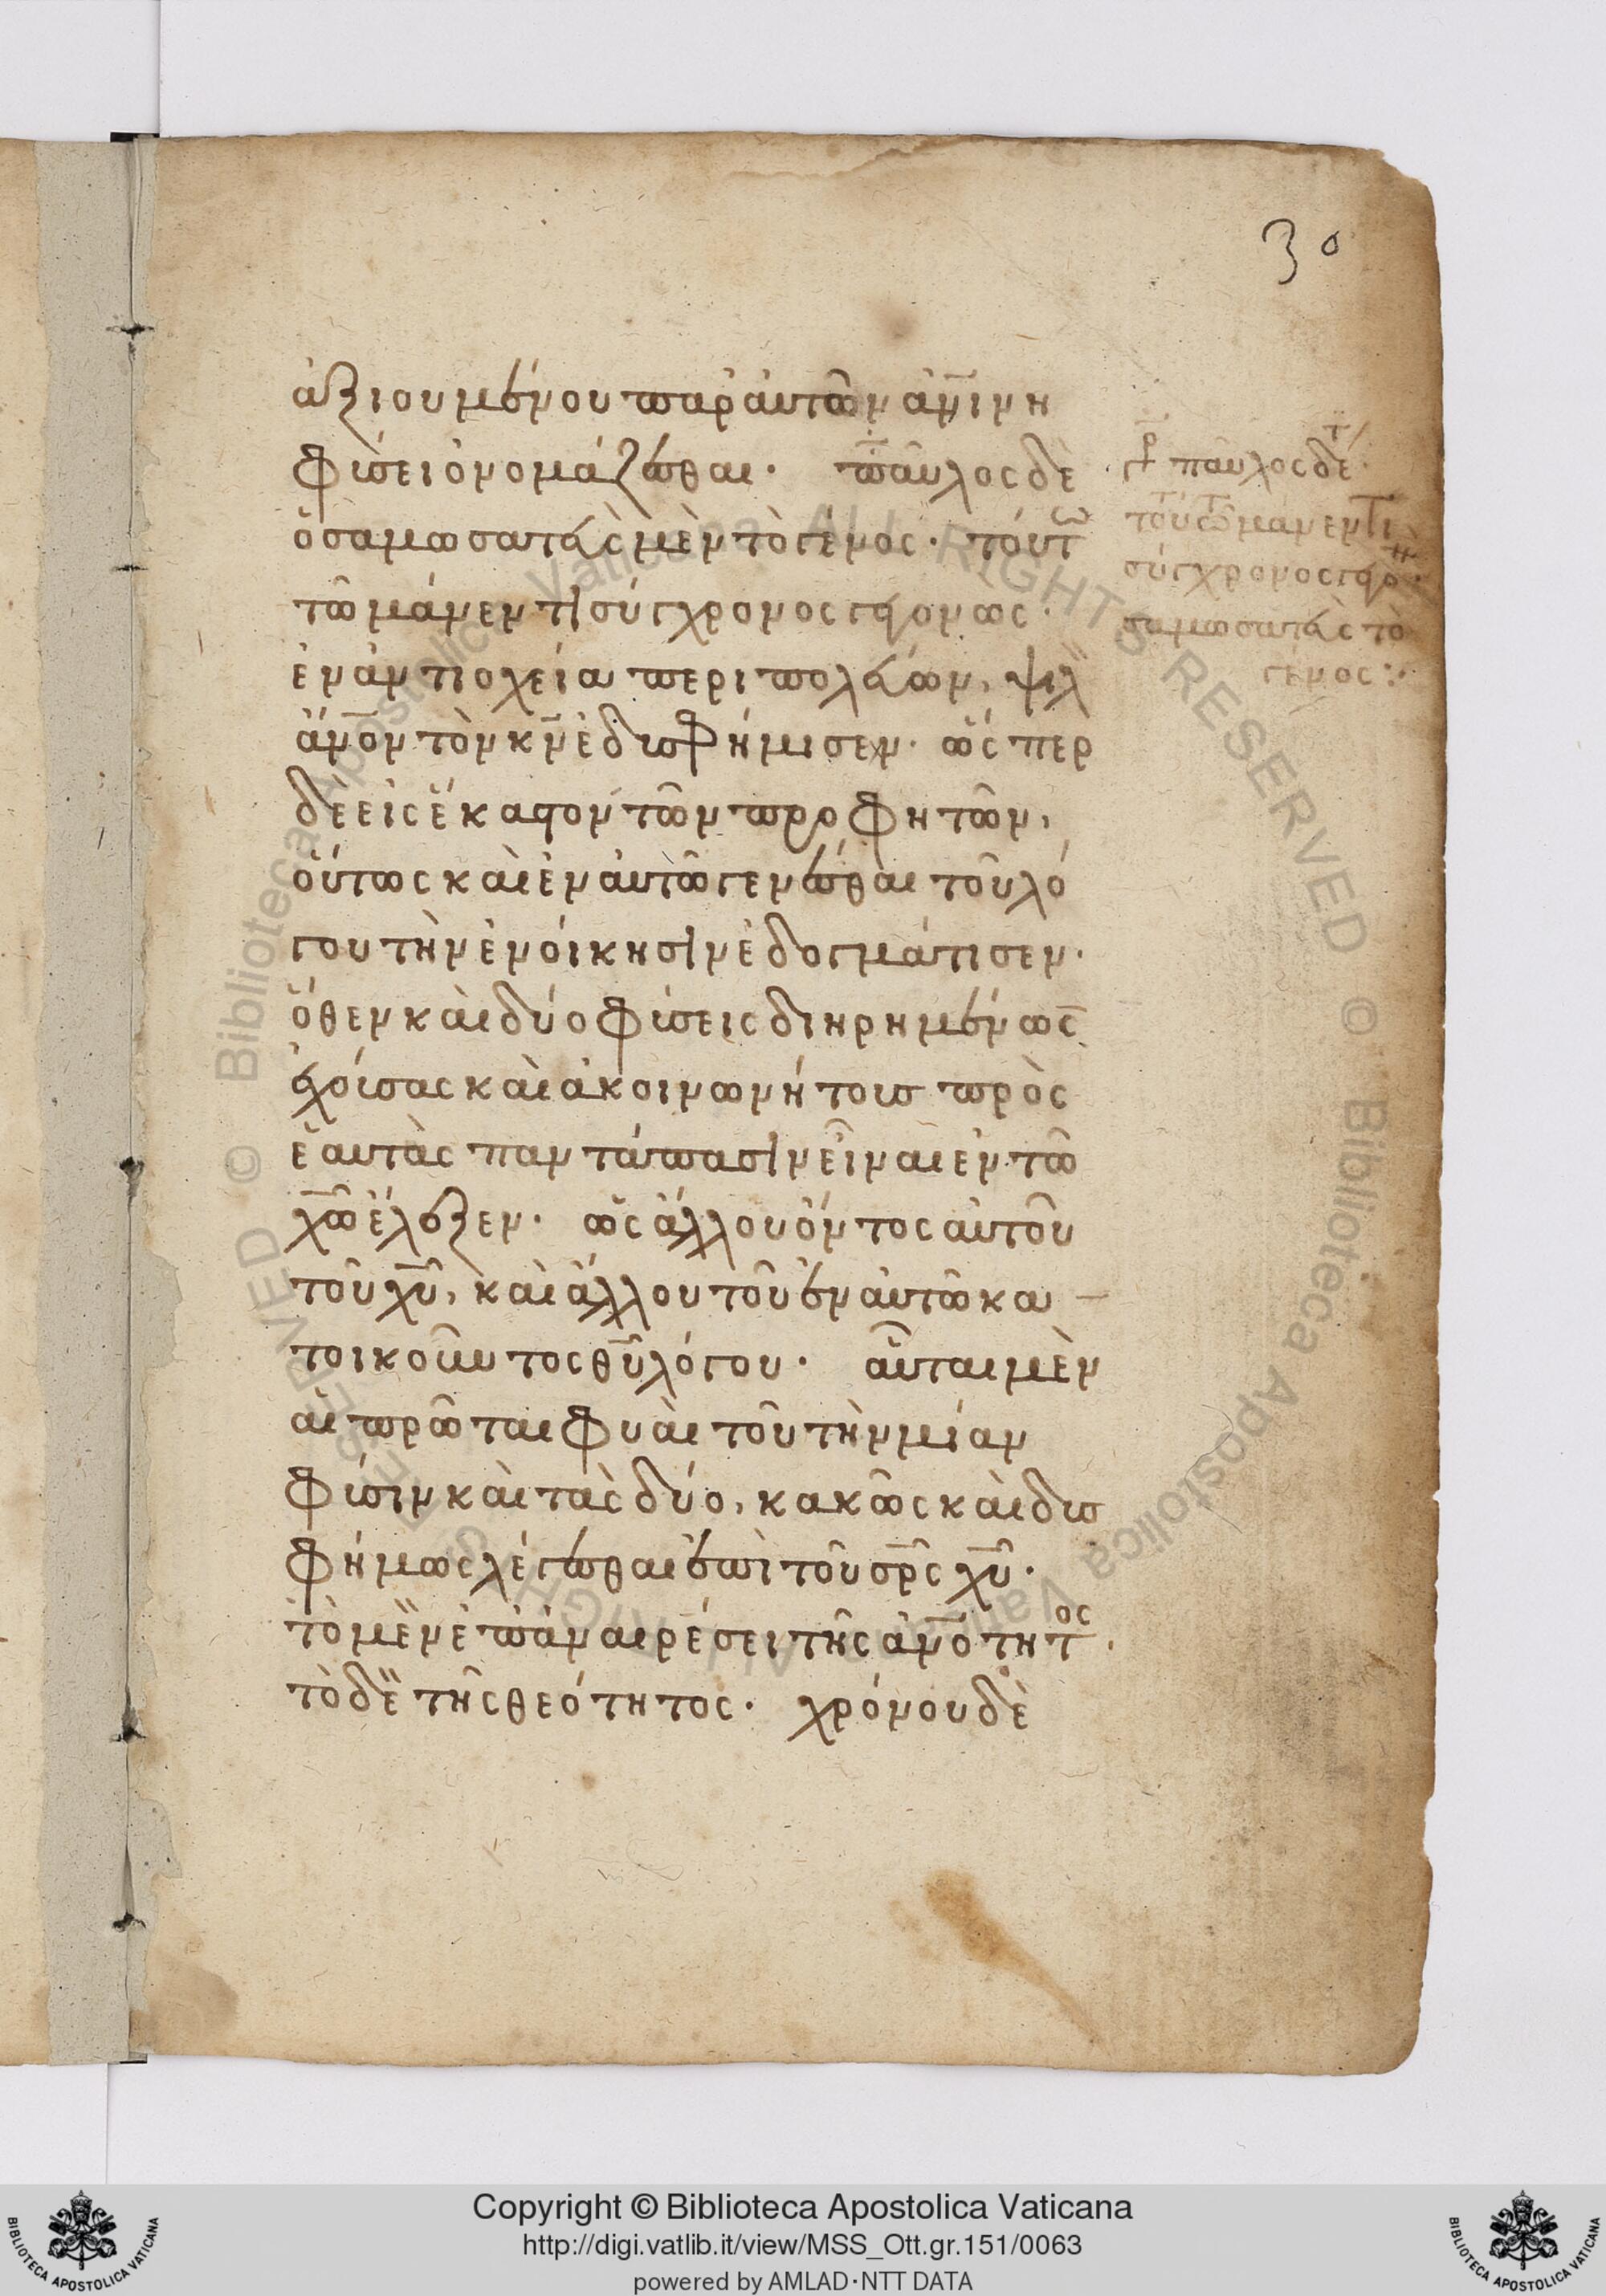 30
ἀξιουμένου παρ' αὐτῶν ἀνίνη
φύσει ὀνομάζεσθαι· παῦλος δὲ
ὁ σαμωσατεὺς μὲν τὸ γένος· τούτω
τῶ μάνεντι σύγχρονος γεγονως·
ἐν ἀντιοχεία περιπολεύων, ψιλ
ἄνον τὸν κν ἐδυσφήμισεν· ὥσπερ
δὲ εἰς ἕκαστον τῶν προφητῶν,
οὕτως καὶ ἐν αὐτῶ γενέσθαι τοῦ λό
γου τὴν ἐνοίκησιν ἐδογμάτισεν·
ὅθεν καὶ δύο φύσεις διηρημένως
ἐχούσας καὶ ἀκοινωνήτους πρὸς
ἑαυτὰς παντάπασιν εἶναι ἐν τῶ
χῶ ἔλεξεν· ὡς ἄλλου ὄντος αὐτοῦ
τοῦ χυ, καὶ ἄλλου τοῦ ἐν αὐτῶ κα
τοικοῦντος θυ λόγου· αὗται μὲν
αἱ πρῶται φυαὶ τοῦ τὴν μίαν
φύσιν καὶ τὰς δύο, κακῶς καὶ δυσ
φήμως λέγεσθαι ἐπὶ τοῦ σρς χυ·
τὸ μὲν ἐπ' ἀναιρέσει τῆς ἀνότητος·
τὸ δὲ τῆς θεότητος· χρόνου δὲ
γρ παῦλος δὲ
τούτω τῶ μάνεντι
σύγχρονος
σαμωσατεὺς τὸ
γένος:·
Copyright © Biblioteca Apostolica Vaticana
http://digi.vatlib.it/view/MSS_Ott.gr.151/0063
powered by AMLAD·NTT DATA
BIBLIOTECA APOSTOLICA VATICANA
BIBLIOTECA APOSTOLICA VATICANA
© Biblioteca Apostolica Vaticana ALL RIGHTS RESERVED
© Biblioteca Apostolica Vaticana ALL RIGHTS RESERVED